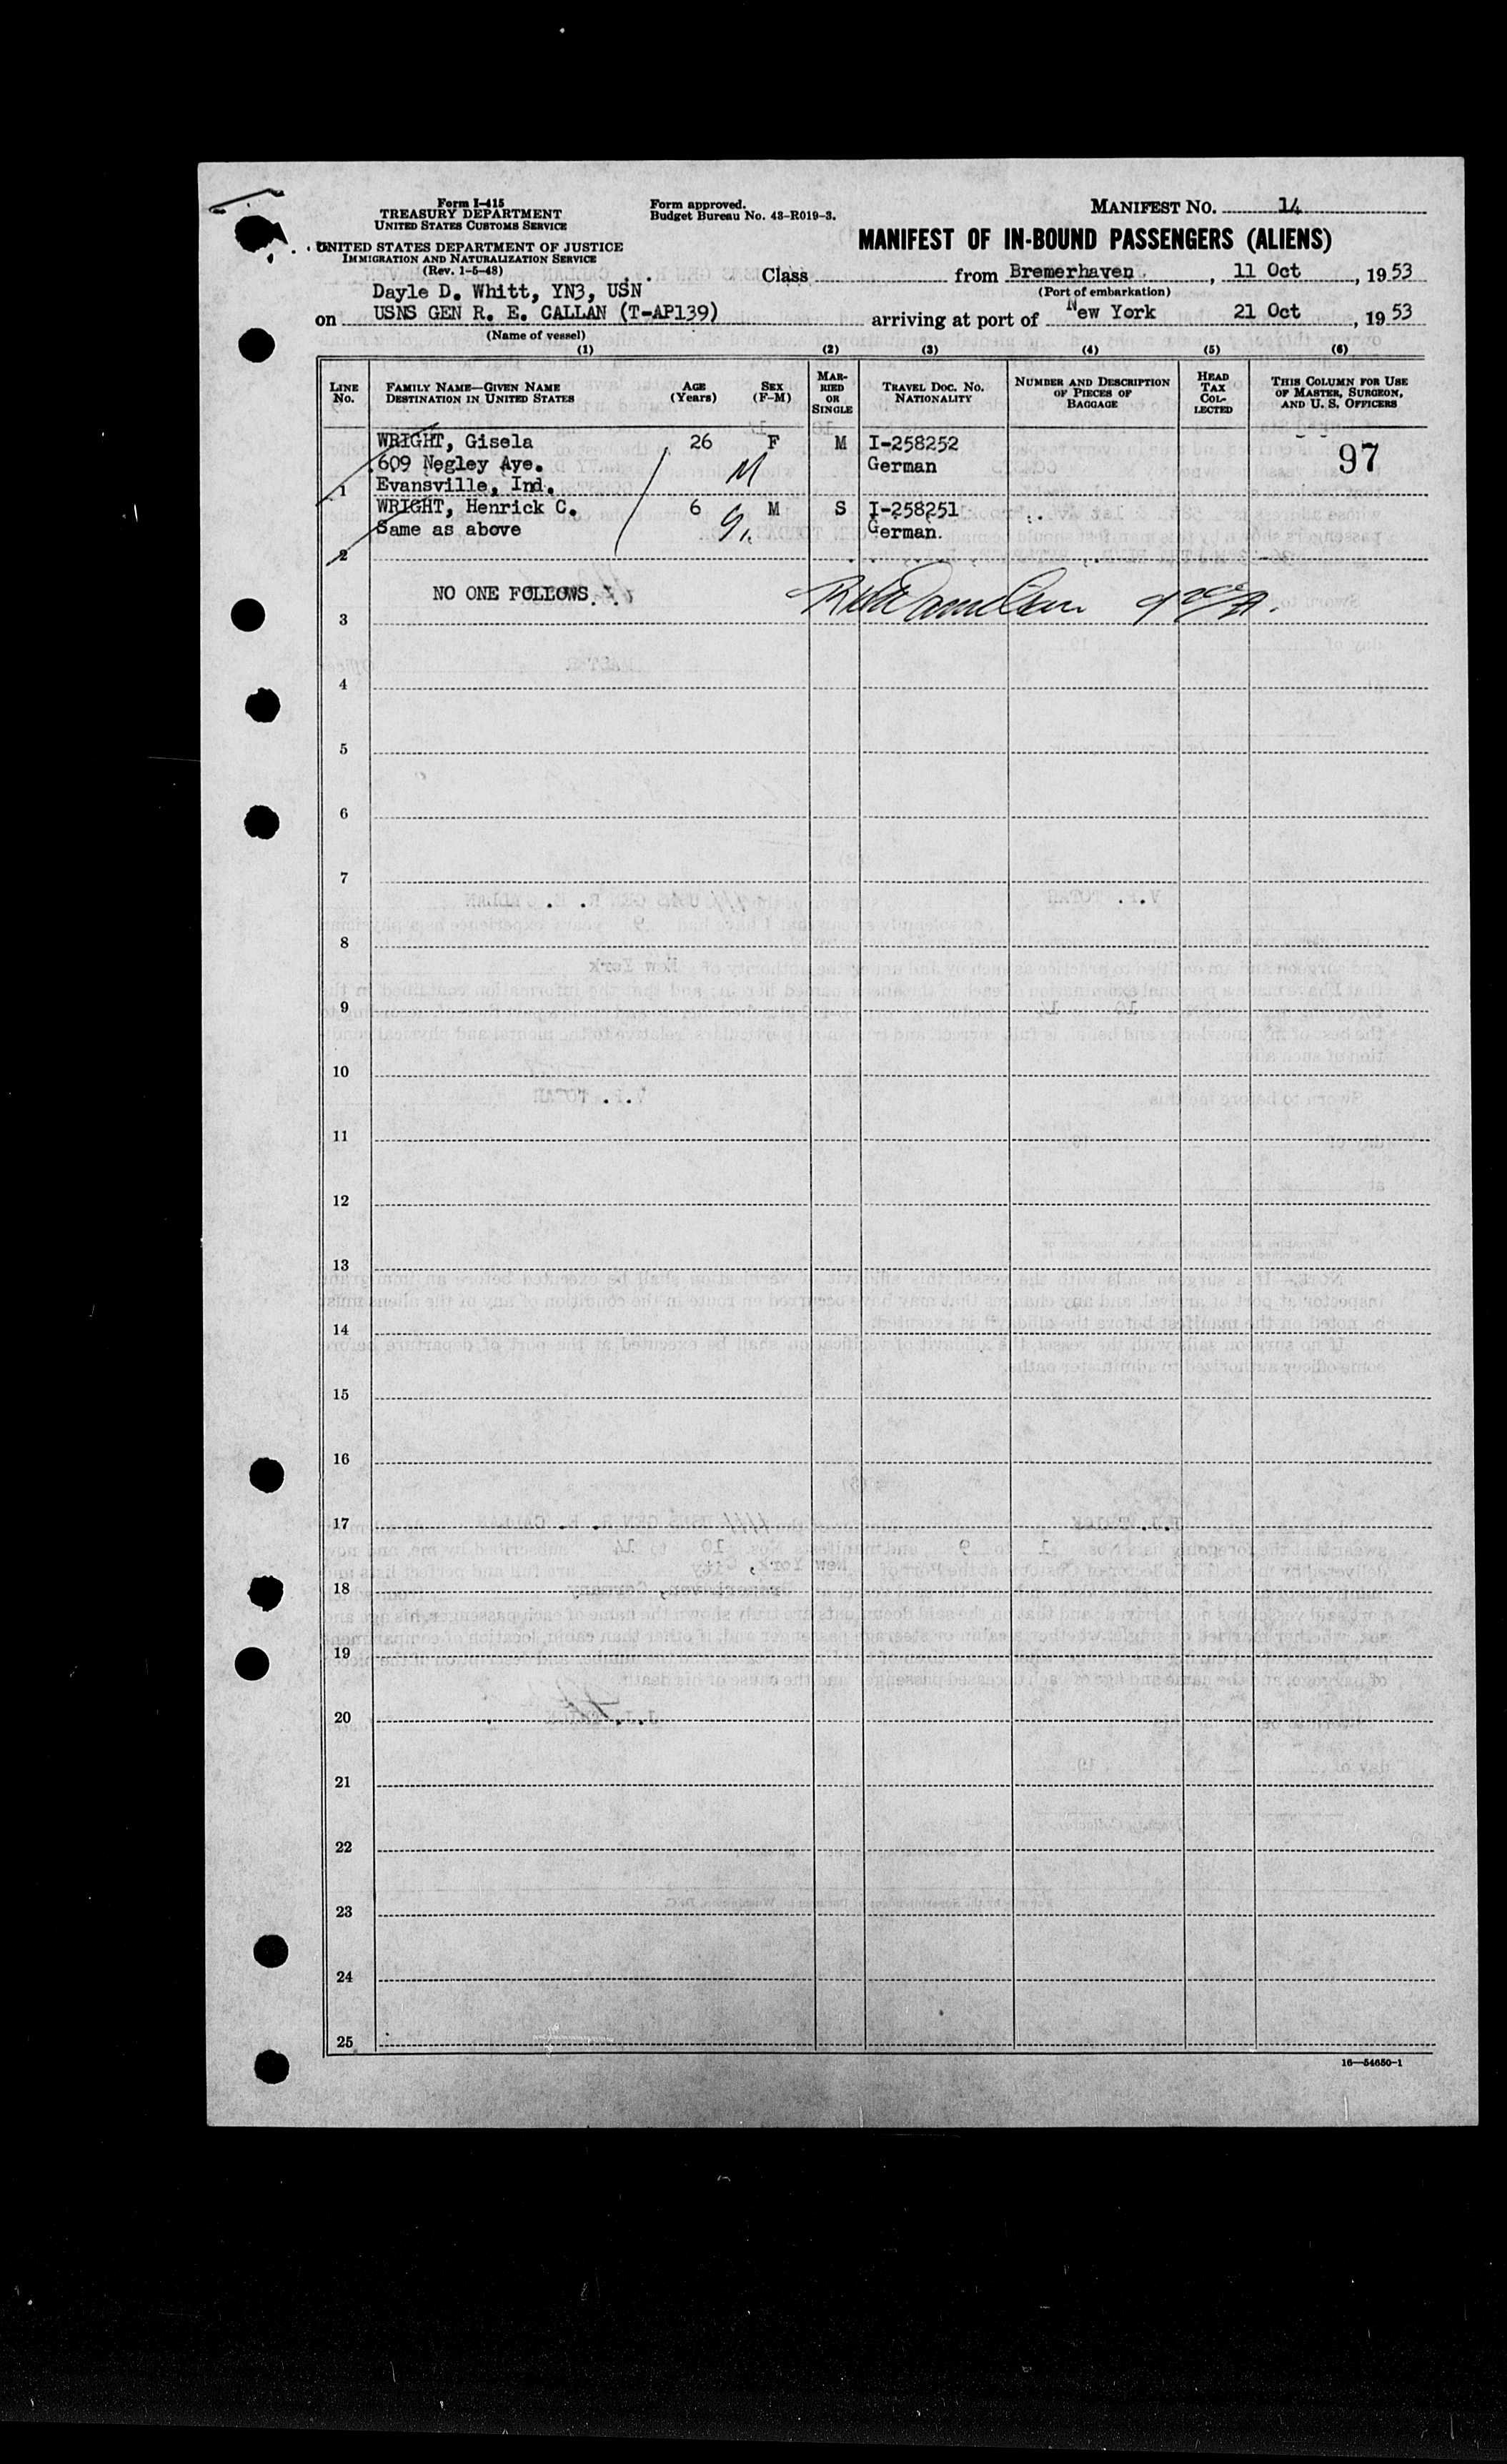 Form I-415
TREASURY DEPARTMENT
UNITED STATES CUSTOMS SERVICE
UNITED STATES DEPARTMENT OF JUSTICE
IMMIGRATION AND NATURALIZATION SERVICE
(Rev. 1-5-48)
Form approved.
Budget Bureau No. 43-R019-3.
MANIFEST NO. 14
MANIFEST OF IN-BOUND PASSENGERS (ALIENS)
Class from Bremerhaven, 11 Oct, 1953
(Port of embarkation)
Dayle D. Whitt, YN3, USN
on USNS GEN R. E. CALLAN (T-AP139) arriving at port of New York 21 Oct, 1953
(Name of vessel)
(1) (2) (3) (4) (5) (6)
LINE NO. FAMILY NAME—GIVEN NAME DESTINATION IN UNITED STATES AGE (Years) SEX (F-M) MARRIED OR SINGLE TRAVEL DOC. NO. NATIONALITY NUMBER AND DESCRIPTION OF PIECES OF BAGGAGE HEAD TAX COLLECTED THIS COLUMN FOR USE OF MASTER, SURGEON, AND U. S. OFFICERS
WRIGHT, Gisela 26 F M I-258252 97
609 Negley Ave. German
1 Evansville, Ind. M
WRIGHT, Henrick C. 6 M S I-258251
Same as above German.
2
NO ONE FOLLOWS
3
4
5
6
7
8
9
10
11
12
13
14
15
16
17
18
19
20
21
22
23
24
25
16—54650-1